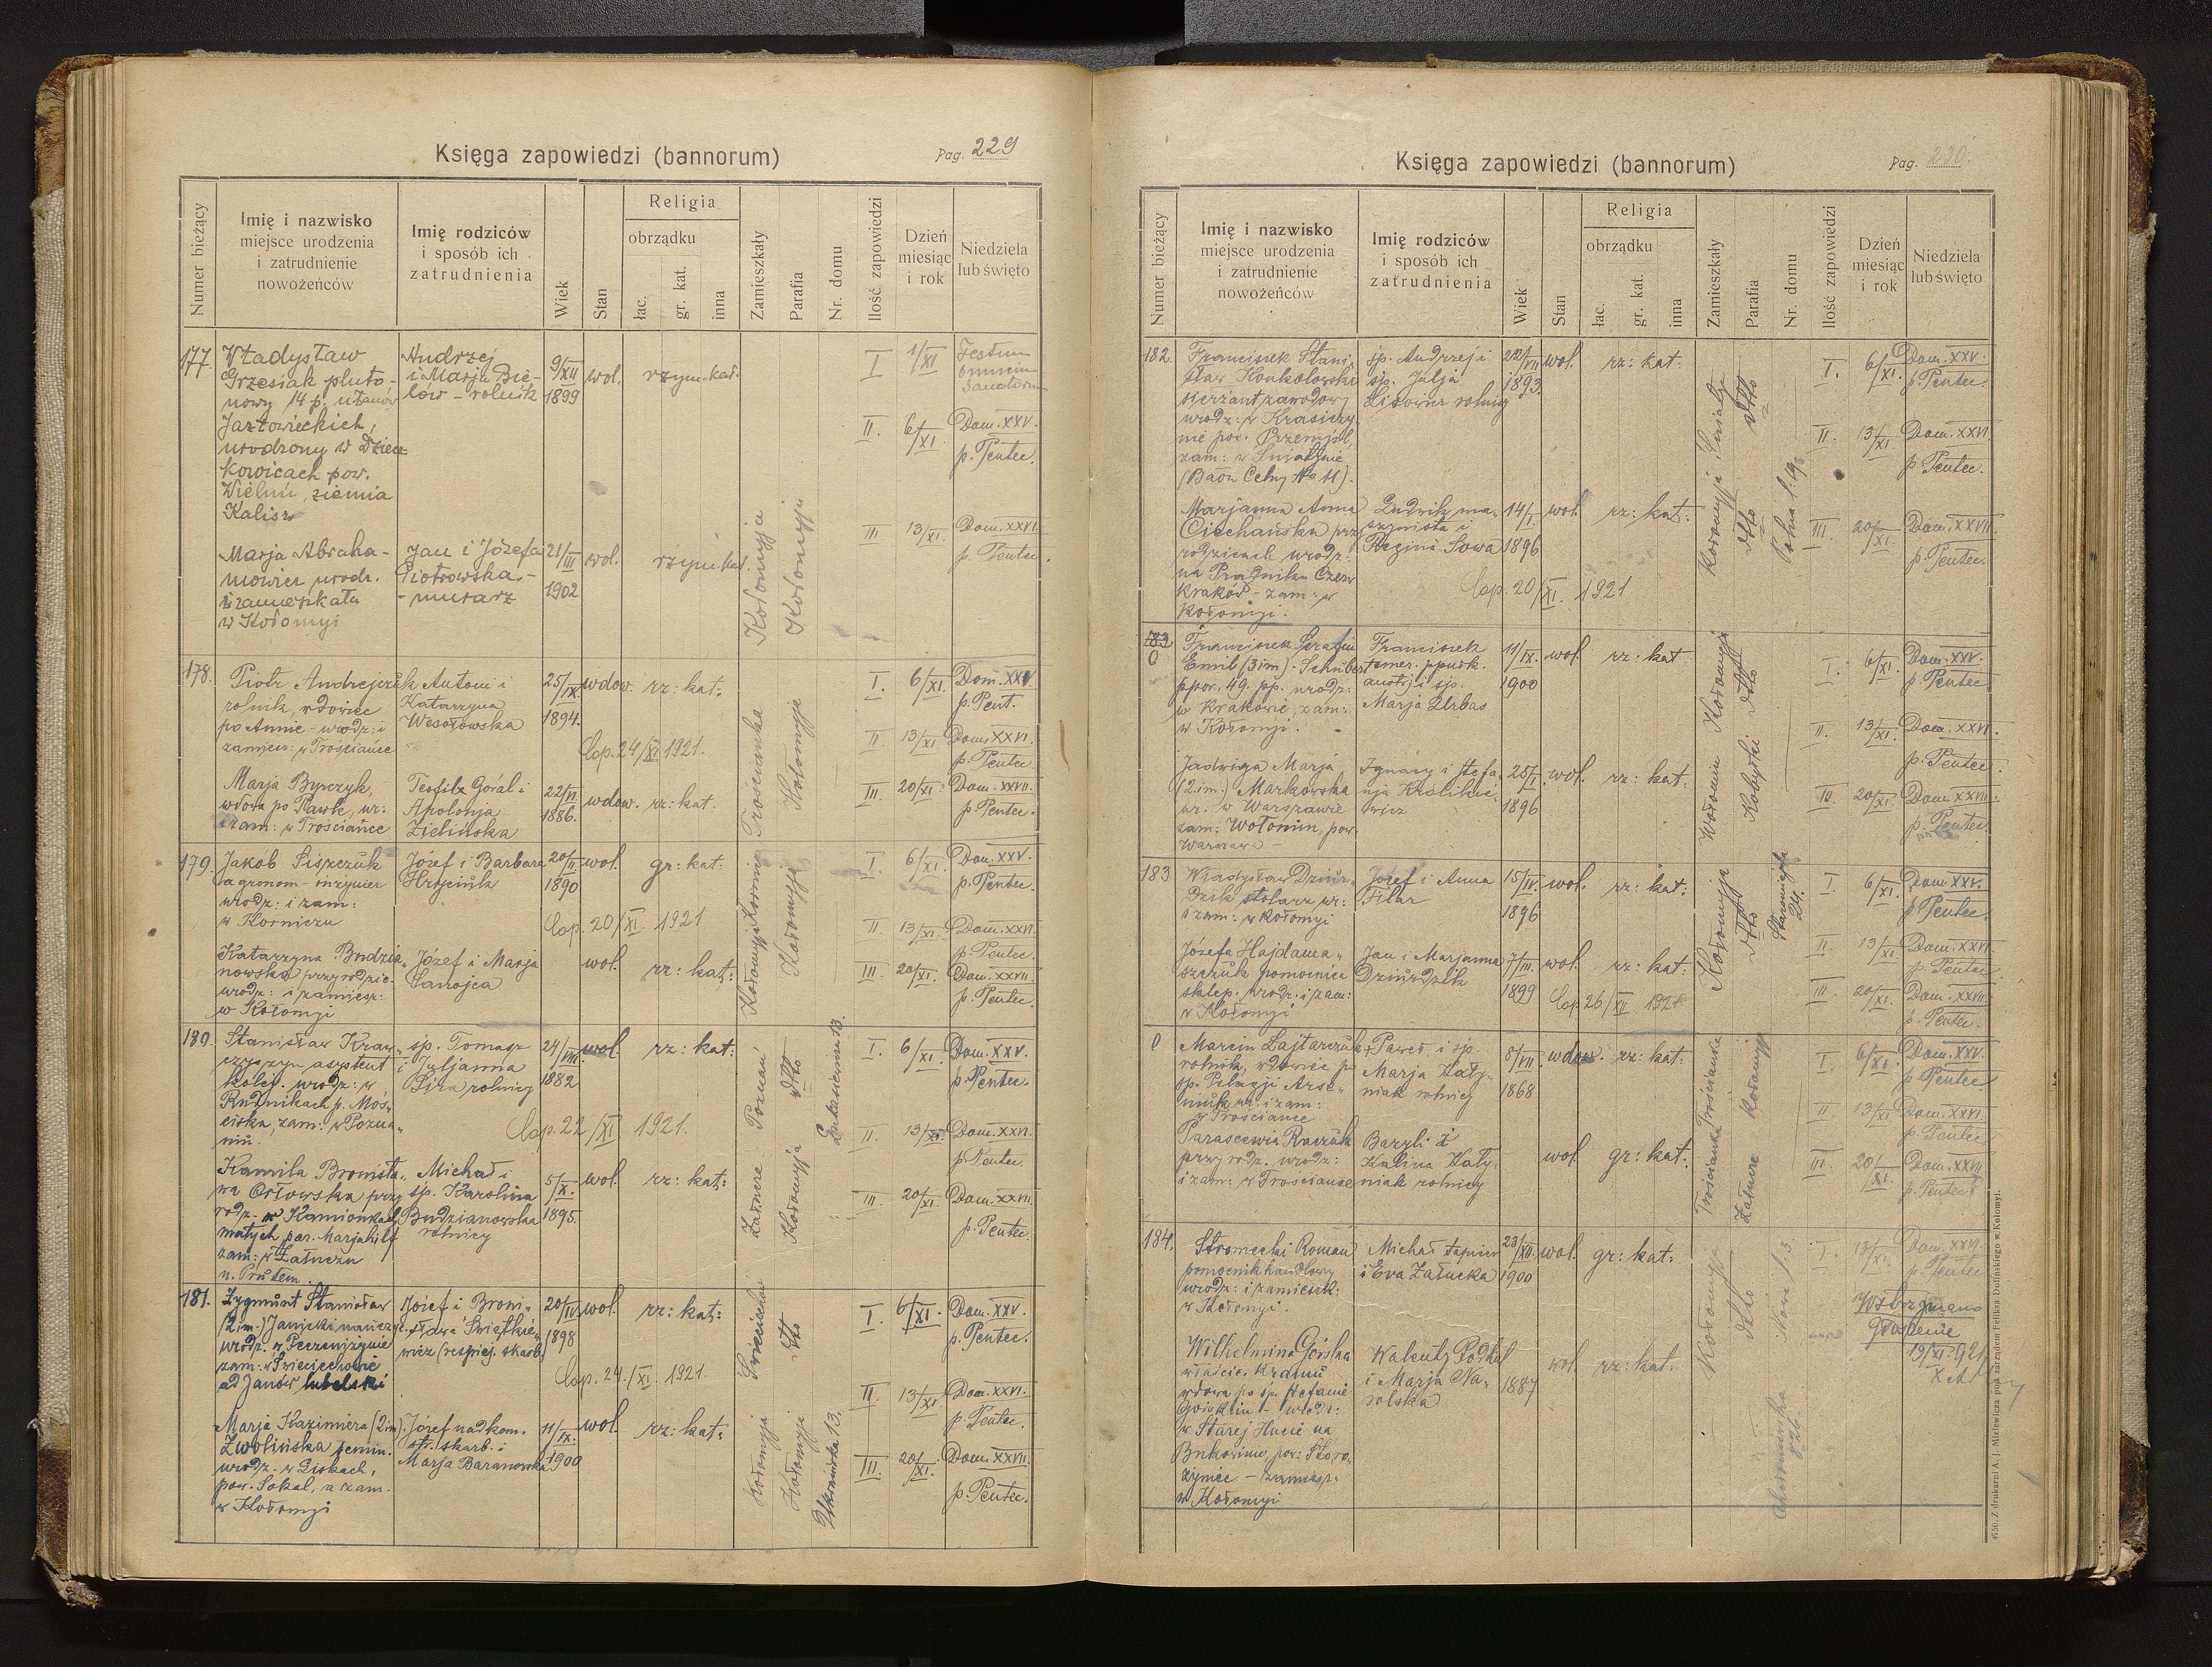 Księga zapowiedzi (bannorum)
Pag. 229
Numer bieżący
Imię i nazwisko
miejsce urodzenia
i zatrudnienie
nowożeńców
Imię rodziców
i sposób ich
zatrudnienia
Wiek
Stan
Religia
obrządku
łac.
gr. kat.
inna
Zamieszkały
Parafia
Nr. domu
Ilość zapowiedzi
Dzień
miesiąc
i rok
Niedziela
lub święto
177.
Władysław
Grzesiak pluto-
nowy 14 p. ułanów
Jazłowieckich,
urodzony w
kowicach pow.
Wieluń, ziemia
Kalisz
Andrzej
i Marja Bie-
lów - rolnik
9/XII
1899
wol.
rzym. kat.
I
1/XI
Festum
omnium
Sanctorum
II.
6/XI
Dom. XXV.
p. Pentec.
III
13/XI.
Dom. XXVI.
p. Pentec.
Marja Abraha-
mowicz urodz.
i zamieszkała
w Kołomyi
Jan i Józefa
Piotrowska -
- murarz
21/III
1902
wol.
rzym. kat.
Kołomyja
Kołomyja
178.
Piotr Andrejczuk
rolnik, wdowiec
po Annie - urodz: i
zamiesz: w Trościańce
Antoni i
Katarzyna
Wesołowska
25/IX
1894.
wdow.
rz: kat:
Cop. 24/XI 1921.
I.
6/XI.
Dom. XXV
p. Pent.
II.
13/XI.
Dom. XXVI.
p. Pentec.
III.
20/XI.
Dom. XXVII.
p. Pentec.
Marja Byrczyk,
wdowa po Pawle, ur:
i zam: w Trościańce
Teofil Góral i
Apolonja
Zielińska
22/VI
1886.
wdow.
rz: kat.
Trościanka
Kołomyja
179.
Jakób Siszczuk
agronom - inżynier
urodz: i zam:
w Korniczu
Józef i Barbara
20/II.
1890
wol.
gr: kat:
Cop. 20/XI. 1921
I
6/XI.
Dom. XXV.
p. Pentec.
II.
13/XI.
Dom. XXVI.
p. Pentec.
III.
20/XI.
Dom. XXVII.
p. Pentec.
Katarzyna Budzia-
nowska przy rodzic.
urodz: i zamiesz:
w Kołomyi
Józef i Marja
Sanojca
wol.
rz: kat:
Kołomyja Kornicz
Kołomyja
180.
Stanisław Kraw-
czyszyn, asystent
kolej. urodz: w
Rudnikach p. Moś-
ciska, zam: w Pozna-
niu.
śp. Tomasz
i Juljanna
Sira rolnicy
24/VIII
1882
wol.
rz: kat:
Cop. 22/XI 1921.
I.
6/XI.
Dom. XXV.
p. Pentec.
II.
13/XI.
Dom. XXVI.
p. Pentec.
III
20/XI.
Dom. XXVII.
p. Pentec.
Kamila Bronisła-
wa Orłowska przy
rodz. w Kamionkach
małych par. Marjahilf
zam: w Załuczu
n. Prutem.
Michał i
śp. Karolina
Budzianowska
rolnicy
5/X.
1895.
wol.
rz: kat:
Poznań
dtto
Kołomyja
181.
Zygmunt Stanisław
(2 im.) Janicki nauczyc.
urodz. w Peczeniżynie
zam: w Świeciechowie
ad Janów lubelski
Józef i Broni-
sława Świątkie-
wicz (respicj. skarb.)
20/IV
1898
wol.
rz: kat:
Cop. 24./XI. 1921.
I.
6/XI.
Dom. XXV.
p. Pentec.
II.
13/XI.
Dom. XXVI.
p. Pentec.
III.
20/XI.
Dom. XXVII.
p. Pentec.
Marja Kazimiera (2 im)
Zwolińska
urodz. w Liskach,
pow. Sokal, a zam.
w Kołomyi
Józef nadkom.
str. skarb. i
Marja Baranowska
11/IX.
1900
wol.
rz: kat:
Świeciechów
dtto
Kołomyja
Kołomyja
Księga zapowiedzi (bannorum)
Pag. 230.
Numer bieżący
Imię i nazwisko
miejsce urodzenia
i zatrudnienie
nowożeńców
Imię rodziców
i sposób ich
zatrudnienia
Wiek
Stan
Religia
obrządku
łac.
gr. kat.
inna
Zamieszkały
Parafia
Nr. domu
Ilość zapowiedzi
Dzień
miesiąc
i rok
Niedziela
lub święto
182.
Franciszek Stani-
sław Konkolowski
sierżant zawodowy
urodz: w Krasiczy-
nie pow. Przemyśl,
zam: w Śniatynie
(Baon Celny No 11).
śp. Andrzej i
śp. Julja
Lisowicz rolnicy
22/VII
1893.
wol.
rz: kat:
I.
6/XI.
Dom. XXV.
p. Pentec.
II.
13/XI.
Dom. XXVI.
p. Pentec.
III.
20/XI.
Dom. XXVII.
p. Pentec.
Marjanna Anna
Ciechańska przy
rodzicach urodz:
na Prądniku Czerw
Kraków - zam: w
Kołomyi.
Ludwik ma-
szynista i
Regina Sowa
14/I.
1896
wol.
rz: kat:
Cop. 20/XI. 1921
Kołomyja
dtto
dtto
183
0
Franciszek Serafin
Emil (3 im). Schubert
ppor. 49. pp. urodz:
w Krakowie, zam:
w Kołomyi.
Franciszek
emer. ppułk.
austrj. i śp.
Marja Urbas
11/IX.
1900
wol.
rz: kat
I.
6/XI.
Dom. XXV.
p. Pentec
II.
13/XI.
Dom. XXVI.
p. Pentec.
III.
20/XI.
Dom. XXVII.
p. Pentec.
Jadwiga Marja
(2 im.) Markowska
ur. w Warszawie
zam: Wołomin, pow.
Warszawa -
Ignacy i Stefa-
nja Królikie-
wicz
25/I.
1896
wol.
rz: kat:
Wołomin
Kołomyja
dtto
183
Władysław Dziur-
dzik stolarz ur:
i zam: w Kołomyi
Józef i Anna
Filar
15/IV.
1896
wol.
rz: kat:
I
6/XI.
Dom. XXV.
p. Pentec.
II.
13/XI.
Dom. XXVI.
p. Pentec.
III.
20/XI.
Dom. XXVII.
p. Pentec.
Józefa Hajdama-
szczuk pomocnica
sklep. urodz. i zam:
w Kołomyi
Jan i Marjanna
Dziurdzik
7/III.
1899
wol.
rz: kat:
Cop. 26/XII 1921
Kołomyja
dtto
24.
0
Marcin Łajtarczuk
rolnik, wdowiec po
śp. Pelagji Arse-
niuk ur: i zam:
w Trościańce
Paweł i śp.
Marja Haty-
niak rolnicy
8/VII.
1868
wdow.
rz: kat:
I
6/XI.
Dom. XXV.
p. Pentec
II.
13/XI
Dom. XXVI.
p. Pentec.
III.
20/XI.
Dom. XXVII.
p. Pentec.
Parascewia Raczuk
przy rodz. urodz:
i zam: w Trościańce
Bazyli i
Kalina Haty-
niak rolnicy
wol.
gr: kat:
Trościanka
Trościanka
Kołomyja
184.
Stromecki Roman
pomocnik handlowy
urodz: i zamieszk:
w Kołomyi.
Michał tapicer
i Eva Załucka
23/XII.
1900
wol.
gr: kat:
I.
13/XI.
Dom. XXVI.
p. Pentec
Wstrzymano
głoszenie
19/XI. 921
Wilhelmina Górska
właścic. kramu
wdowa po śp. Stefanie
Górskim - urodz:
w Starej Hucie na
Bukowinie, pow: Storo-
żyniec - zamiesz.
w Kołomyi
i Marja Na-
rolska
1887
wol.
rz: kat.
Kołomyja
dtto
Z drukarni A. J. Miziewicza pod zarządem Feliksa Dolińskiego w Kołomyi.